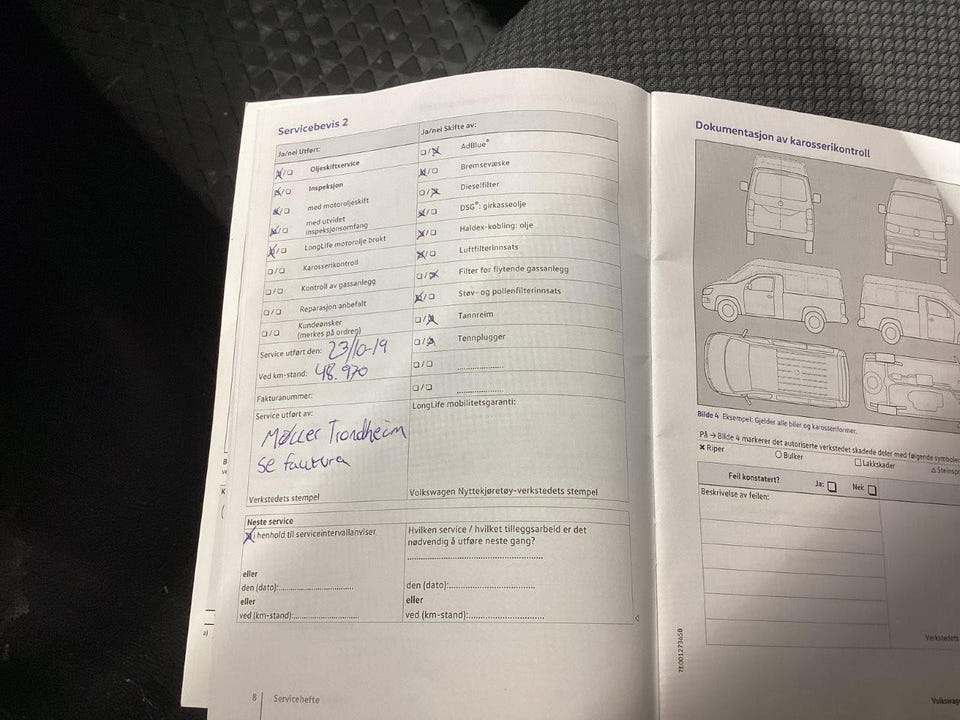 Servicebevis 2
Ja/nei Utført:
☒/☐ Oljeskiftservice
☒/☐ Inspeksjon
☒/☐ med motoroljeskift
☒/☐ med utvidet
inspeksjonsomfang
☒/☐ LongLife motorolje brukt
☐/☐ Karosserikontroll
☐/☐ Kontroll av gassanlegg
☐/☐ Reparasjon anbefalt
☐/☐ Kundeønsker
(merkes på ordren)
Service utført den: 23/10-19
Ved km-stand: 48.970
Fakturanummer:
Service utført av:
Møller Trondheim
se faktura
Verkstedets stempel
Ja/nei Skifte av:
☐/☒ AdBlue®
☒/☐ Bremsevæske
☐/☒ Dieselfilter
☒/☐ DSG®: girkasseolje
☒/☐ Haldex-kobling: olje
☒/☐ Luftfilterinnsats
☐/☒ Filter for flytende gassanlegg
☒/☐ Støv- og pollenfilterinnsats
☐/☒ Tannreim
☐/☒ Tennplugger
☐/☐ ....................
☐/☐ ....................
LongLife mobilitetsgaranti:
Volkswagen Nyttekjøretøy-verkstedets stempel
Neste service
☒ i henhold til serviceintervallanviser
eller
den (dato):........................
eller
ved (km-stand):........................
Hvilken service / hvilket tilleggsarbeid er det
nødvendig å utføre neste gang?
................................................
den (dato):..............................
eller
ved (km-stand):..........................
a)
8 | Servicehefte
Dokumentasjon av karosserikontroll
Bilde 4 Eksempel: Gjelder alle biler og karosseriformer.
På → Bilde 4 markerer det autoriserte verkstedet skadede deler med følgende symbole
✖ Riper ○ Bulker ☐ Lakkskader △ Steinspr
Feil konstatert? Ja: ☐ Nei: ☐
Beskrivelse av feilen:
Verkstedets
7E0012736SB
Volkswage